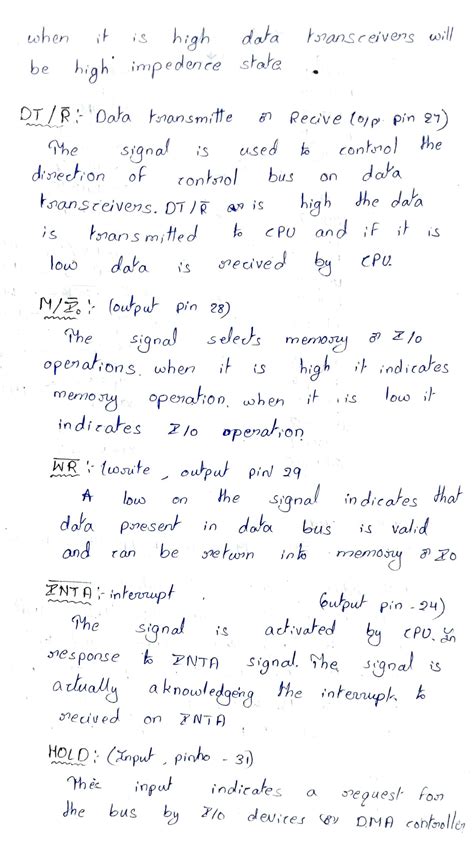 when it is high data transceivers will
be high impedence state.
DT/R̅:- Data transmitte or Recive (o/p pin 27)
The signal is used to control the
direction of control bus on data
transceivers. DT/R̅ is high the data
is transmitted to CPU and if it is
low data is recived by CPU.
M/I̅o̅:- (output pin 28)
The signal selects memory or I/o
operations. when it is high it indicates
memory operation. when it is low it
indicates I/o operation
W̅R̅:- (write, output pin 29
A low on the signal indicates that
data present in data bus is valid
and can be return into memory or Io
I̅N̅T̅A̅:- interrupt (output pin - 24)
The signal is activated by CPU. In
response to INTA signal. The signal is
actually aknowledgeng the interrupt to
recived on INTA
HOLD:- (Input, pinno - 31)
The input indicates a request for
the bus by I/o devices or DMA controller